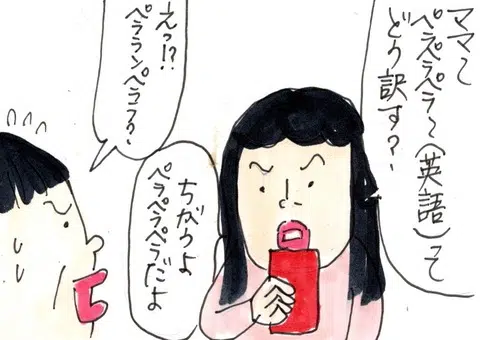 ママ〜
ペラペラペラ〜(英語)って
どう訳す?
えっ!?
ペラランペラコフ?
ちがうよ
ペラペラペラだよ